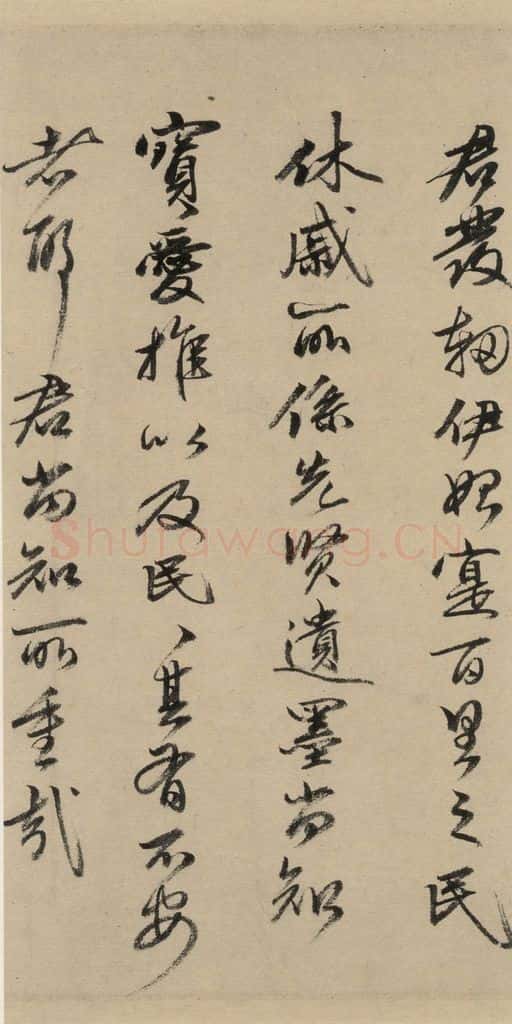 君發軔伊始寔百里之民
休戚所係先賢遺墨尚知
寶愛推以及民〻其有不安
者耶君尚知所重哉
Shufawang.CN